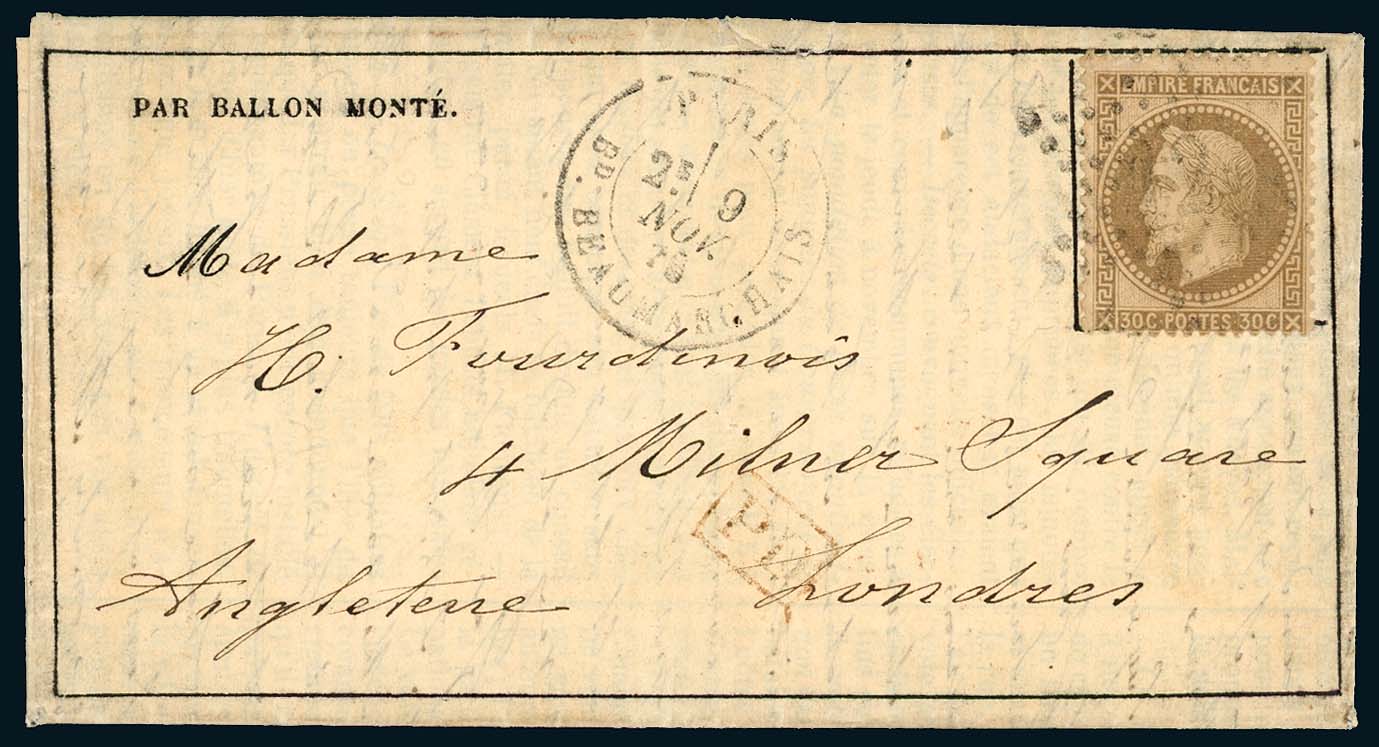 PAR BALLON MONTÉ.
PARIS
2E/ 9
NOV.
70
BD. BEAUMARCHAIS
EMPIRE FRANCAIS
30C POSTES 30C
Madame
H. Fourdinois
4 Milner Square
Londres
Angleterre